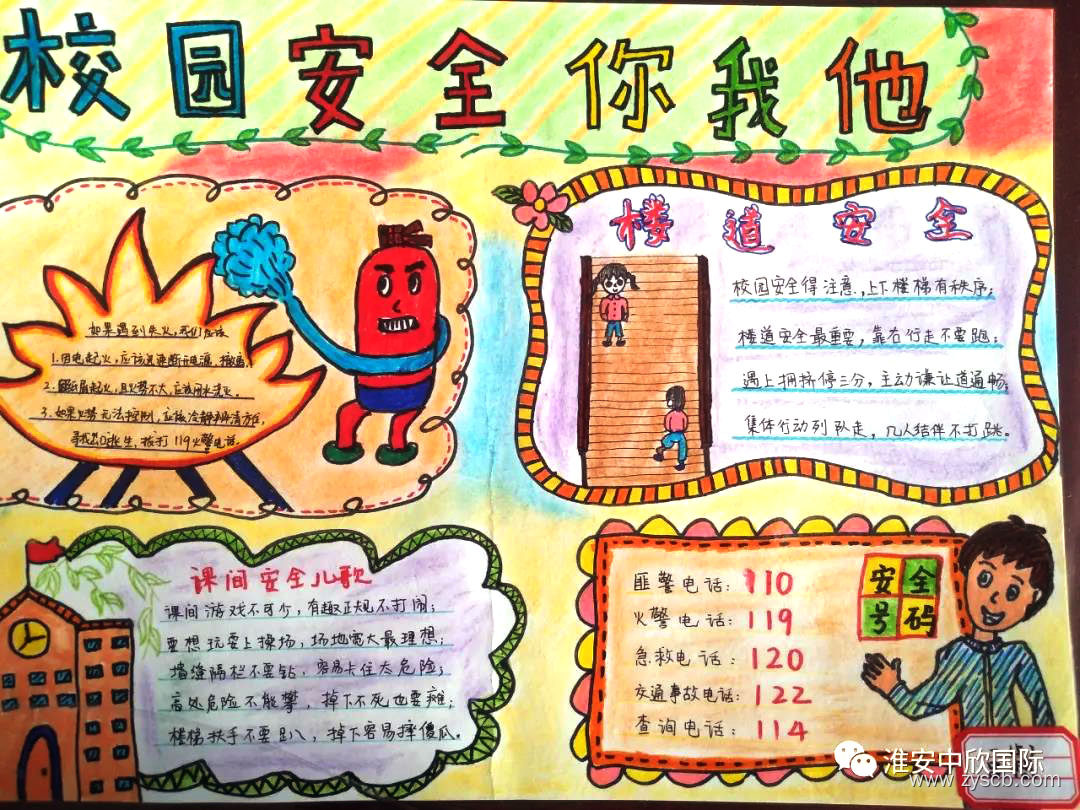 校园安全你我他
如果遇到失火，我们应该
1.因电起火，应该迅速断开电源，撤离。
起火，且火势不大，应该用水浇灭。
3.如果火势无法控制，应该冷静
逃生，拨打119火警电话。
楼道安全
校园安全得注意，上下楼梯有秩序；
楼道安全最重要，靠右行走不要跑；
遇上拥挤停三分，主动谦让道通畅；
集体行动列队走，几人结伴不打跳。
课间安全儿歌
课间游戏不可少，有趣正规不打闹；
要想玩耍上操场，场地宽大最理想；
墙缝隔栏不要钻，容易卡住太危险；
高处危险不能攀，掉下不死也要瘫；
楼梯扶手不要趴，掉下容易摔傻瓜。
安全
号码
匪警电话：110
火警电话：119
急救电话：120
交通事故电话：122
查询电话：114
淮安中欣国际
www.zyscb.com